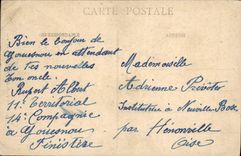 CARTE POSTALE
CORRESPONDANCE
ADRESSE
Bien le bonjour de
Gouesnou en attendant
de tes nouvelles
ton oncle
Rupert
11e Territorial
14e Compagnie
à Gouesnou
Finistère
Mademoiselle
Adrienne
Institutrice à Neuville-Bosc
par Hénonville
Oise